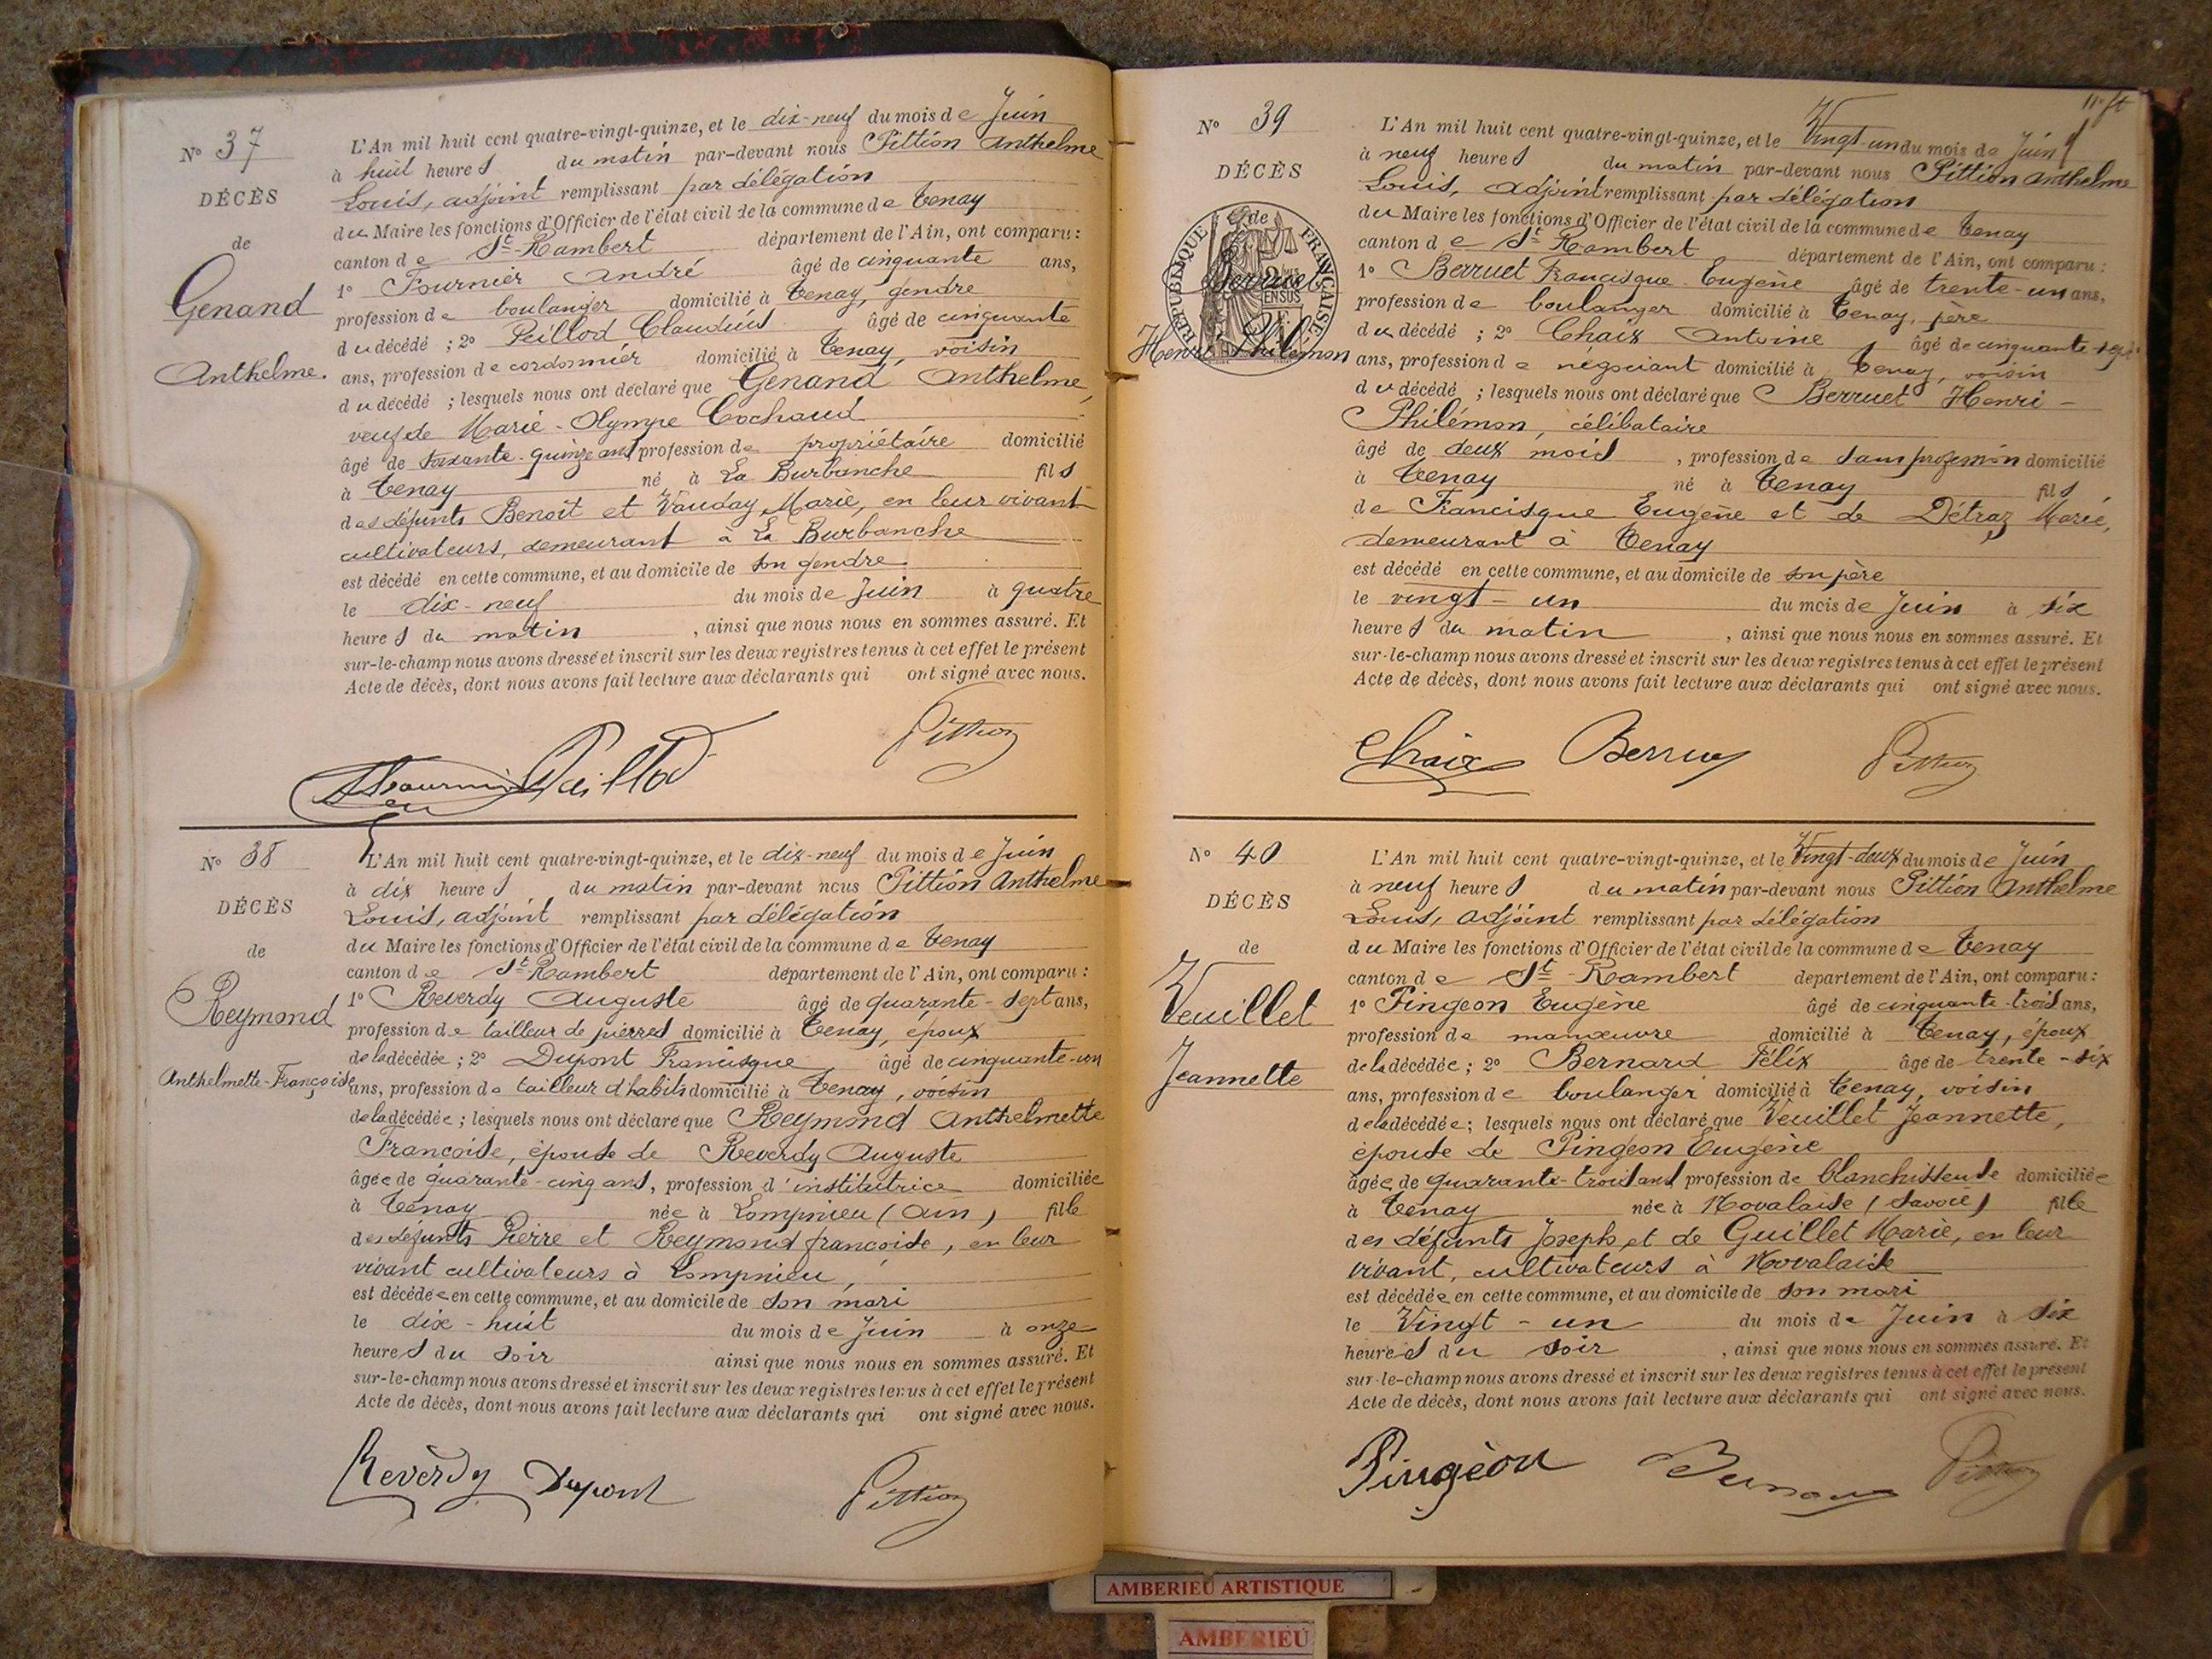 N° 37
DÉCÈS
de
Genand
Anthelme.
L'An mil huit cent quatre-vingt-quinze, et le dix-neuf du mois de Juin
à huit heures du matin par-devant nous Pittion Anthelme
Louis, adjoint remplissant par délégation
du Maire les fonctions d'Officier de l'état civil de la commune de Tenay
canton de St-Rambert département de l'Ain, ont comparu :
1° Fournier André âgé de cinquante ans,
profession de boulanger domicilié à Tenay, gendre
du décédé ; 2° Peillod Claudius âgé de cinquante
ans, profession de cordonnier domicilié à Tenay, voisin
du décédé ; lesquels nous ont déclaré que Genand Anthelme,
veuf de Marie-Olympe Cochaud
âgé de soixante-quinze ans profession de propriétaire domicilié
à Tenay né à La Burbanche fils
des défunts Benoît et Vauday Marie, en leur vivant
cultivateurs, demeurant à La Burbanche
est décédé en cette commune, et au domicile de son gendre
le dix-neuf du mois de Juin à quatre
heures du matin , ainsi que nous nous en sommes assuré. Et
sur-le-champ nous avons dressé et inscrit sur les deux registres tenus à cet effet le présent
Acte de décès, dont nous avons fait lecture aux déclarants qui ont signé avec nous.
Pittion
N° 38
DÉCÈS
de
Reymond
Anthelmette-Françoise
L'An mil huit cent quatre-vingt-quinze, et le dix-neuf du mois de Juin
à dix heures du matin par-devant nous Pittion Anthelme
Louis, adjoint remplissant par délégation
du Maire les fonctions d'Officier de l'état civil de la commune de Tenay
canton de St-Rambert département de l'Ain, ont comparu :
1° Reverdy Auguste âgé de quarante-sept ans,
profession de tailleur de pierres domicilié à Tenay, époux
de la décédée ; 2° Dupont Francisque âgé de cinquante-un
ans, profession de tailleur d'habits domicilié à Tenay, voisin
de la décédée ; lesquels nous ont déclaré que Reymond Anthelmette
Françoise, épouse de Reverdy Auguste
âgée de quarante-cinq ans, profession d'institutrice domiciliée
à Tenay née à Lompnieu (Ain) fille
des défunts Pierre et Reymond françoise, en leur
vivant cultivateurs à Lompnieu,
est décédée en cette commune, et au domicile de son mari
le dix-huit du mois de Juin à onze
heures du soir ainsi que nous nous en sommes assuré. Et
sur-le-champ nous avons dressé et inscrit sur les deux registres tenus à cet effet le présent
Acte de décès, dont nous avons fait lecture aux déclarants qui ont signé avec nous.
Reverdy Dupont Pittion
N° 39
DÉCÈS
de
RÉPUBLIQUE FRANÇAISE
Berruet
Henri Philémon
L'An mil huit cent quatre-vingt-quinze, et le Vingt-un du mois de Juin
à neuf heures du matin par-devant nous Pittion Anthelme
Louis, adjoint remplissant par délégation
du Maire les fonctions d'Officier de l'état civil de la commune de Tenay
canton de St-Rambert département de l'Ain, ont comparu :
1° Berruet Francisque Eugène âgé de trente-un ans,
profession de boulanger domicilié à Tenay, père
du décédé ; 2° Chaix Antoine âgé de cinquante-sept
ans, profession de négociant domicilié à Tenay, voisin
du décédé ; lesquels nous ont déclaré que Berruet Henri-
Philémon, célibataire
âgé de deux mois , profession de sans profession domicilié
à Tenay né à Tenay fils
de Francisque Eugène et de Détraz Marie,
demeurant à Tenay
est décédé en cette commune, et au domicile de son père
le vingt-un du mois de Juin à six
heures du matin , ainsi que nous nous en sommes assuré. Et
sur-le-champ nous avons dressé et inscrit sur les deux registres tenus à cet effet le présent
Acte de décès, dont nous avons fait lecture aux déclarants qui ont signé avec nous.
Chaix Berruet Pittion
N° 40
DÉCÈS
de
Veuillet
Jeannette
L'An mil huit cent quatre-vingt-quinze, et le Vingt-deux du mois de Juin
à neuf heures du matin par-devant nous Pittion Anthelme
Louis, adjoint remplissant par délégation
du Maire les fonctions d'Officier de l'état civil de la commune de Tenay
canton de St-Rambert département de l'Ain, ont comparu :
1° Pingeon Eugène âgé de cinquante-trois ans,
profession de manœuvre domicilié à Tenay, époux
de la décédée ; 2° Bernard Félix âgé de trente-six
ans, profession de boulanger domicilié à Tenay, voisin
de la décédée ; lesquels nous ont déclaré que Veuillet Jeannette,
épouse de Pingeon Eugène
âgée de quarante-trois ans profession de blanchisseuse domiciliée
à Tenay née à Novalaise (Savoie) fille
des défunts Joseph et de Guillet Marie, en leur
vivant, cultivateurs à Novalaise
est décédée en cette commune, et au domicile de son mari
le Vingt-un du mois de Juin à six
heures du soir , ainsi que nous nous en sommes assuré. Et
sur-le-champ nous avons dressé et inscrit sur les deux registres tenus à cet effet le présent
Acte de décès, dont nous avons fait lecture aux déclarants qui ont signé avec nous.
Pingeon Bernard Pittion
AMBERIEU ARTISTIQUE
AMBERIEU